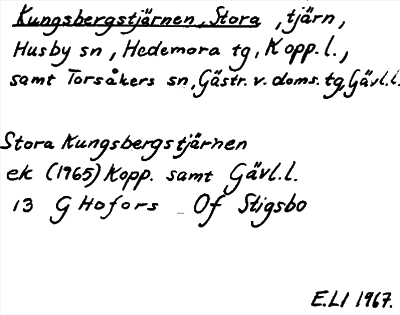 Kungsbergstjärnen, Stora, tjärn,
Husby sn, Hedemora tg, Kopp.l.,
samt Torsåkers sn, Gästr. v. doms. tg, Gävl.l.
Stora Kungsbergstjärnen
ek (1965) Kopp. samt Gävl.l.
13 G Hofors Of Stigsbo
E.LI 1967.